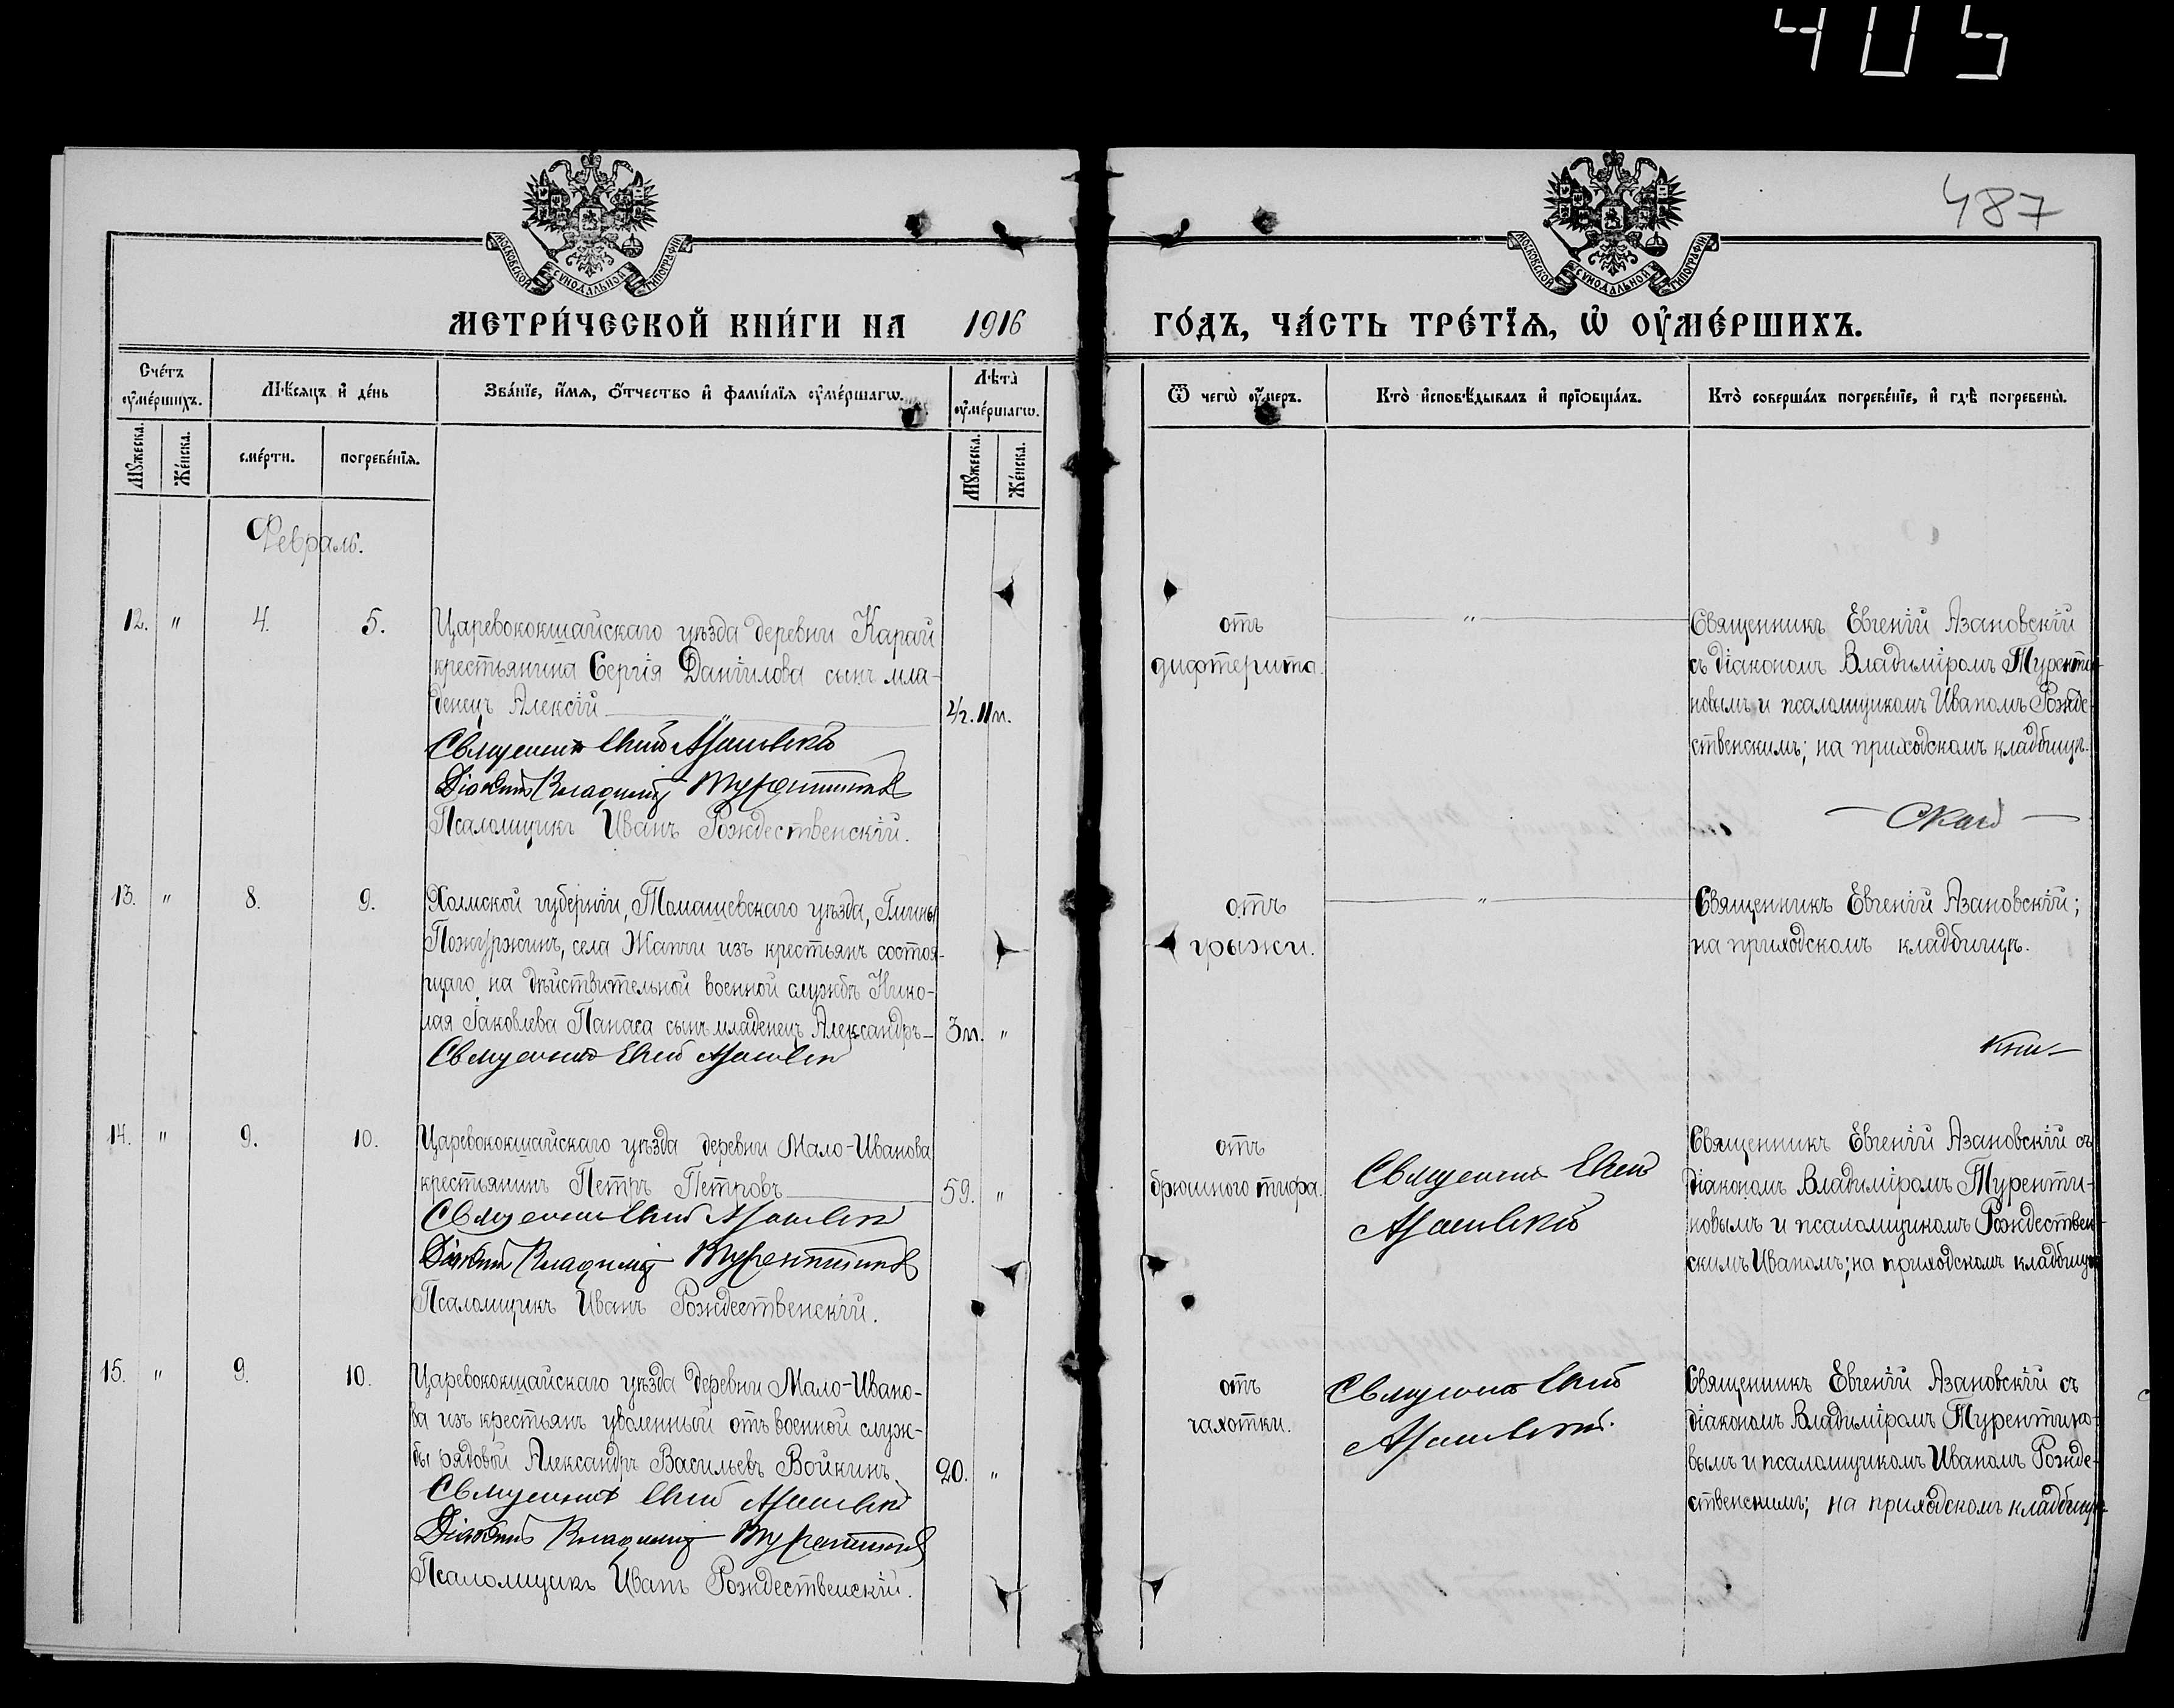 405
487
МОСКОВСКОЙ СѴНОДАЛЬНОЙ ТИПОГРАФІИ
МОСКОВСКОЙ СѴНОДАЛЬНОЙ ТИПОГРАФІИ
МЕТРИ́ЧЕСКОЙ КНИ́ГИ НА 1916 ГО́ДЪ, ЧА́СТЬ ТРЕ́ТЇѦ, Ѡ҆ ОУ҆МЕ́РШИХЪ.
Сче́тъ оу҆ме́ршихъ.
Мѣ́сяцъ и҆ де́нь
Зва́нїе, и҆́мѧ, ѻ҆́тчество и҆ фами́лїѧ оу҆ме́ршагѡ.
Лѣта̀ оу҆ме́ршагѡ.
Ѿ чегѡ̀ оу҆́меръ.
Кто̀ и҆сповѣ́дывалъ и҆ прїѡбща́лъ.
Кто̀ соверша́лъ погребе́нїе, и҆ гдѣ̀ погребены̀.
Мꙋ́жеска.
Же́нска.
сме́рти.
погребе́нїѧ.
Мꙋ́жеска.
Же́нска.
Февраль.
12. " 4. 5.
Царевококшайскаго уѣзда деревни Карай
крестьянина Сергія Даніилова сынъ мла-
денецъ Алексій
2/г. 11м.
Священникъ Азановскій
Діаконъ Владиміръ Турентиновъ
Псаломщикъ Иванъ Рождественскій.
отъ
дифтерита.
"
Священникъ Евгеній Азановскій
съ діакономъ Владиміромъ Туренти-
новымъ и псаломщикомъ Иваномъ Рожде-
ственскимъ; на приходскомъ кладбищѣ.
13. " 8. 9.
Холмской губерніи, Томашевскаго уѣзда, Гмины
Пожуржинъ, села Жапчи изъ крестьянъ состоя-
щаго на дѣйствительной военной службѣ Нико-
лая Іаковлева Панаса сынъ младенецъ Александръ
3м. "
Священникъ Азановскій
отъ
грыжи.
"
Священникъ Евгеній Азановскій;
на приходскомъ кладбищѣ.
14. " 9. 10.
Царевококшайскаго уѣзда деревни Мало-Иванова
крестьянинъ Петръ Петровъ
59. "
Священникъ Азановскій
Діаконъ Владиміръ Турентиновъ
Псаломщикъ Иванъ Рождественскій.
отъ
брюшного тифа.
Священникъ
Азановскій
Священникъ Евгеній Азановскій съ
діакономъ Владиміромъ Туренти-
новымъ и псаломщикомъ Рождествен-
скимъ Иваномъ; на приходскомъ кладбищѣ
15. " 9. 10.
Царевококшайскаго уѣзда деревни Мало-Ивано-
ва изъ крестьянъ уволенный отъ военной служ-
бы рядовой Александръ Васильевъ Войкинъ
20. "
Священникъ Азановскій
Діаконъ Владиміръ Турентиновъ
Псаломщикъ Иванъ Рождественскій.
отъ
чахотки.
Священникъ
Азановскій.
Священникъ Евгеній Азановскій съ
діакономъ Владиміромъ Турентино-
вымъ и псаломщикомъ Иваномъ Рожде-
ственскимъ; на приходскомъ кладбищѣ